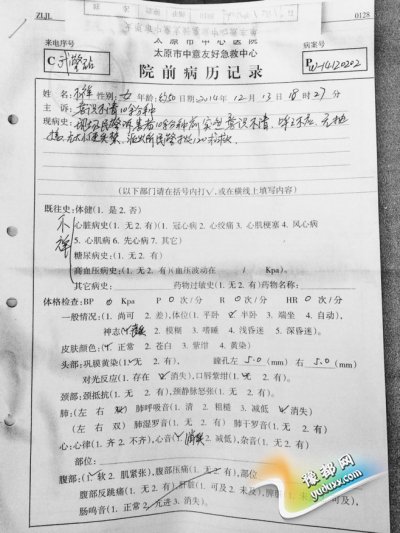 ZLJL 0128
太原市中心医院
来电序号 太原市中意友好急救中心 病案号
院前病历记录 PW-14120202
姓名: 不详 性别: 女 年龄: 约50 日期 2014年 12月 13日 18时 27分
主诉: 意识不清10余分种
现病史:
(以下部门请在括号内打√,或在横线上填写内容)
既往史:体健(1.是 2.否)
不详
心脏病史(1.无 2.有)(1.冠心病 2.心绞痛 3.心肌梗塞 4.风心病
5.心肌病 6.先心病 7.其它)
糖尿病史:(1.无 2.有)
高血压病史:(1.无 2.有)(血压波动在 / Kpa)。
其它病史: 药物过敏史(1.无 2.有)药物名称:
体格检查:BP 0 Kpa P 0 次/分 R 0 次/分 HR 0 次/分
一般情况:(1.尚可 2.差),体位(1.平卧 2.半卧 3.端坐 4.自动),
神志 2.模糊 3.嗜睡 4.浅昏迷 5.深昏迷)。
皮肤颜色:(1.正常 2.苍白 3.紫绀 4.黄染)
头部:巩膜黄染(1.无 2.有), 瞳孔左 5.0 (mm) 右 5.0 (mm)
对光反应(1.存在 2.消失),口唇紫绀(1.无 2.有)。
颈部:颈抵抗(1.无 2.有),颈静脉怒张(1.无 2.有)。
肺:(左 右 双)肺呼吸音(1.清 2.粗糙 3.减低 4.消失)
(左 右 双)肺湿罗音(1.无 2.有) 肺干罗音(1.无 2.有)
心:心律(1.齐 2.不齐),心音 消失 2.减低),杂音(1.无 2.有)
部位:
腹部:(1.软 2.肌紧张),腹部压痛(1.无 2.有),部位
腹部反跳痛(1.无 2.有),肝脏(1.可及 2.未及),脾脏(1. 及),
肠鸣音(1.正常 2.亢进 3.消失)。
豫都网
yuduxx.com